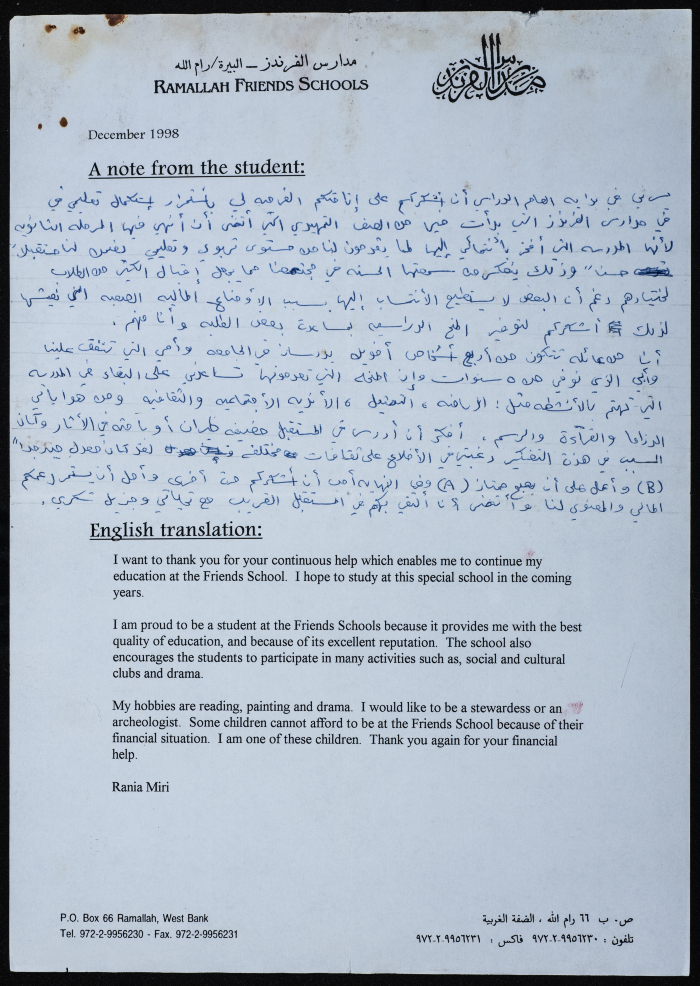 مدارس الفرندز – البيرة/رام الله
RAMALLAH FRIENDS SCHOOLS
مدارس الفرندز
December 1998
A note from the student:
يسرني في بداية العام الدراسي أن أشكركم على إتاحتكم الفرصة لي باستمرار إستكمال تعليمي في
في مدارس الفرندز التي بدأت فيها من الصف التمهيدي التي أتمنى أن أنهي فيها المرحلة الثانوية
لأنها المدرسة التي أفخر بانتمائي إليها لما يقدمون لنا من مستوى تربوي وتعليمي يضمن لنا مستقبلاً
حسناً وذلك يعكس من سمعتها الحسنة في مجتمعنا مما يجعل إقبال الكثير من الطلاب
لختيارهم رغم أن البعض لا يستطيع الأنتساب إليها بسبب الأوضاع المالية الصعبة التي نعيشها
لذلك أشكركم لتوفير المنح الدراسية لمساعدة بعض الطلبة وأنا منهم.
أنا من عائلة تتكون من أربع أشخاص أخوين يدرسان في الجامعة وأمي التي تنفق علينا
وأبي الذي توفي من ٥ سنوات وإن المنحة التي تقدمونها تساعدني على البقاء في المدرسة
التي تهتم بالأنشطة مثل: الرياضة، التمثيل، الأندية الأجتماعية والثقافية ومن هواياتي
الدراما والقراءة والرسم. أفكر أن أدرس في المستقبل مضيفة طيران أو باحثة في الأثار وكان
السبب في هذا التفكير رغبتي في الأطلاع على ثقافات مختلفة لقد كان معدل جيد جداً
(B) وأعمل على أن يصبح ممتاز (A) وفي النهاية أحب أن أشكركم مرة أخرى وأمل أن يستمر دعمكم
المالي والمعنوي لنا وأتمنى أن ألتقي بكم في المستقبل القريب مع تحياتي وجزيل شكري.
English translation:
I want to thank you for your continuous help which enables me to continue my
education at the Friends School. I hope to study at this special school in the coming
years.
I am proud to be a student at the Friends Schools because it provides me with the best
quality of education, and because of its excellent reputation. The school also
encourages the students to participate in many activities such as, social and cultural
clubs and drama.
My hobbies are reading, painting and drama. I would like to be a stewardess or an
archeologist. Some children cannot afford to be at the Friends School because of their
financial situation. I am one of these children. Thank you again for your financial
help.
Rania Miri
P.O. Box 66 Ramallah, West Bank
Tel. 972-2-9956230 - Fax. 972-2-9956231
ص. ب ٦٦ رام الله ، الضفة الغربية
تلفون : ٩٧٢-٢-٩٩٥٦٢٣٠ فاكس : ٩٧٢-٢-٩٩٥٦٢٣١